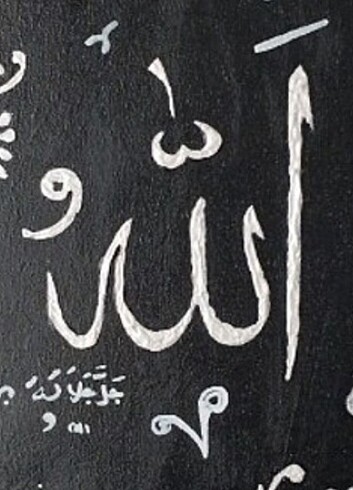 اللّٰه
جَلَّ جَلَالُهُ